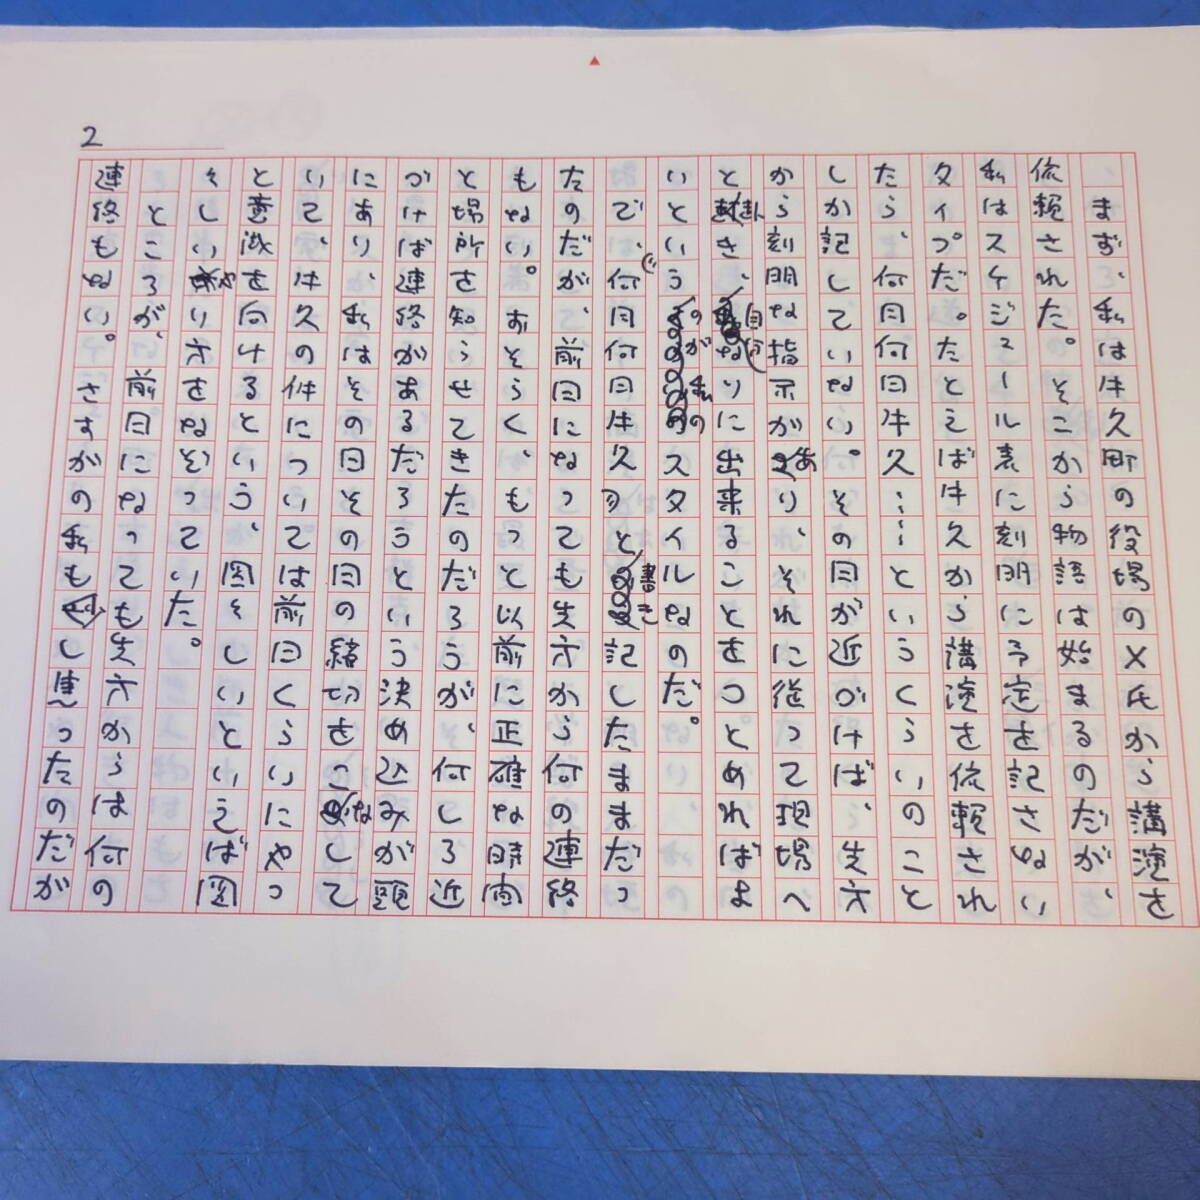 2
まず、私は牛久町の役場のX氏から講演を
依頼された。そこから物語は始まるのだが、
私はスケジュール表に刻明に予定を記さない
タイプだ。たとえば牛久から講演を依頼され
たら、何月何日牛久……というくらいのこと
しか記していない。その日が近づけば、先方
から刻明な指示があり、それに従って現場へ
と赴き、自分なりに出来ることをつとめればよ
いというのが私のスタイルなのだ。
で、何月何日牛久と書き記したままだっ
たのだが、前日になっても先方から何の連絡
もない。おそらく、もっと以前に正確な時間
と場所を知らせてきたのだろうが、何しろ近
づけば連絡があるだろうという決め込みが頭
にあり、私はその日その日の締切をこなして
いて、牛久の件については前日くらいにやっ
と意識を向けるという、図々しいといえば図
々しいやり方をなぞっていた。
ところが、前日になっても先方からは何の
連絡もない。さすがの私も少し焦ったのだが